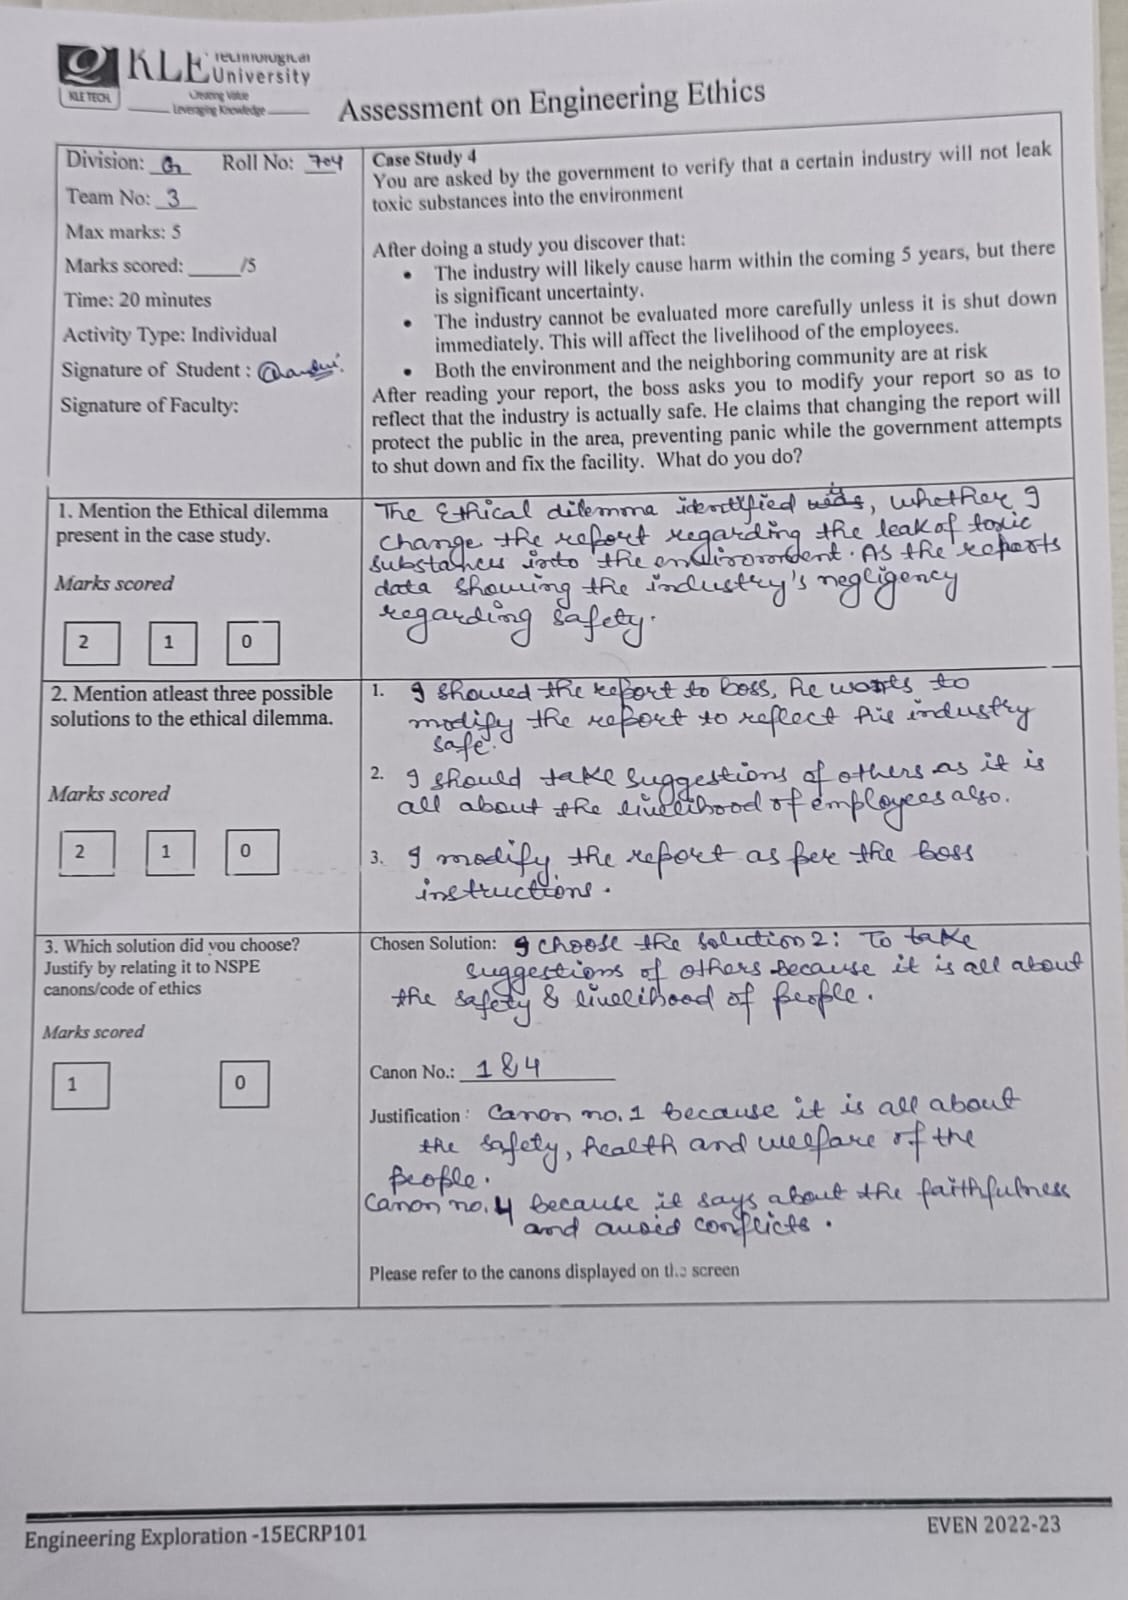 KLE Technological
University
KLE TECH.
Creating Value
Leveraging Knowledge
Assessment on Engineering Ethics
Division: G Roll No: 704
Team No: 3
Max marks: 5
Marks scored: _____/5
Time: 20 minutes
Activity Type: Individual
Signature of Student :
Signature of Faculty:
Case Study 4
You are asked by the government to verify that a certain industry will not leak
toxic substances into the environment
After doing a study you discover that:
• The industry will likely cause harm within the coming 5 years, but there
is significant uncertainty.
• The industry cannot be evaluated more carefully unless it is shut down
immediately. This will affect the livelihood of the employees.
• Both the environment and the neighboring community are at risk
After reading your report, the boss asks you to modify your report so as to
reflect that the industry is actually safe. He claims that changing the report will
protect the public in the area, preventing panic while the government attempts
to shut down and fix the facility. What do you do?
1. Mention the Ethical dilemma
present in the case study.
Marks scored
2 1 0
The Ethical dilemma identified is, whether I
change the report regarding the leak of toxic
substances into the environment. As the reports
data showing the industry's negligency
regarding safety.
2. Mention atleast three possible
solutions to the ethical dilemma.
Marks scored
2 1 0
1. I showed the report to boss, he wants to
modify the report to reflect his industry
safe.
2. I should take suggestions of others as it is
all about the livelihood of employees also.
3. I modify the report as per the boss
instructions.
3. Which solution did you choose?
Justify by relating it to NSPE
canons/code of ethics
Marks scored
1 0
Chosen Solution: I choose the solution 2: To take
suggestions of others because it is all about
the safety & livelihood of people.
Canon No.: 1 & 4
Justification : Canon no. 1 because it is all about
the safety, health and welfare of the
people.
Canon no. 4 because it says about the faithfulness
and avoid conflicts.
Please refer to the canons displayed on the screen
Engineering Exploration -15ECRP101
EVEN 2022-23